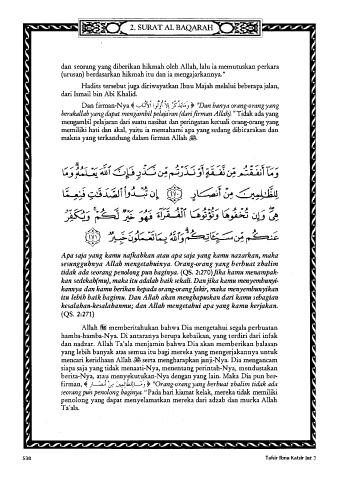 2. SURAT AL BAQARAH
dan seorang yang diberikan hikmah oleh Allah, lalu ia memutuskan perkara
(urusan) berdasarkan hikmah itu dan ia mengajarkannya."
Hadits tersebut juga diriwayatkan Ibnu Majah melalui beberapa jalan,
dari Ismail bin Abi Khalid.
Dan firman-Nya ﴿ وَمَا يَذَّكَّرُ إِلَّا أُولُوا الْأَلْبَابِ ﴾ "Dan hanya orang-orang yang
berakallah yang dapat mengambil pelajaran (dari firman Allah)." Tidak ada yang
mengambil pelajaran dari suatu nasihat dan peringatan kecuali orang-orang yang
memiliki hati dan akal, yaitu ia memahami apa yang sedang dibicarakan dan
makna yang terkandung dalam firman Allah ﷻ.
وَمَآ أَنفَقْتُم مِّن نَّفَقَةٍ أَوْ نَذَرْتُم مِّن نَّذْرٍ فَإِنَّ ٱللَّهَ يَعْلَمُهُۥ وَمَا
لِلظَّـٰلِمِينَ مِنْ أَنصَارٍ ﴿٢٧٠﴾ إِن تُبْدُوا۟ ٱلصَّدَقَـٰتِ فَنِعِمَّا
هِىَ وَإِن تُخْفُوهَا وَتُؤْتُوهَا ٱلْفُقَرَآءَ فَهُوَ خَيْرٌ لَّكُمْ وَيُكَفِّرُ
عَنكُم مِّن سَيِّـَٔاتِكُمْ وَٱللَّهُ بِمَا تَعْمَلُونَ خَبِيرٌ ﴿٢٧١﴾
Apa saja yang kamu nafkahkan atau apa saja yang kamu nazarkan, maka
sesungguhnya Allah mengetahuinya. Orang-orang yang berbuat zhalim
tidak ada seorang penolong pun baginya. (QS. 2:270) Jika kamu menampak-
kan sedekah(mu), maka itu adalah baik sekali. Dan jika kamu menyembunyi-
kannya dan kamu berikan kepada orang-orang fakir, maka menyembunyikan
itu lebih baik bagimu. Dan Allah akan menghapuskan dari kamu sebagian
kesalahan-kesalahanmu; dan Allah mengetahui apa yang kamu kerjakan.
(QS. 2:271)
Allah ﷻ memberitahukan bahwa Dia mengetahui segala perbuatan
hamba-hamba-Nya. Di antaranya berupa kebaikan, yang terdiri dari infak
dan nadzar. Allah Ta'ala menjamin bahwa Dia akan memberikan balasan
yang lebih banyak atas semua itu bagi mereka yang mengerjakannya untuk
mencari keridhaan Allah ﷻ serta mengharapkan janji-Nya. Dia mengancam
siapa saja yang tidak mentaati-Nya, menentang perintah-Nya, mendustakan
berita-Nya, atau menyekutukan-Nya dengan yang lain. Maka Dia pun ber-
firman, ﴿ وَمَا لِلظَّالِمِينَ مِنْ أَنْصَارٍ ﴾ "Orang-orang yang berbuat zhalim tidak ada
seorang pun penolong baginya." Pada hari kiamat kelak, mereka tidak memiliki
penolong yang dapat menyelamatkan mereka dari adzab dan murka Allah
Ta'ala.
538 Tafsir Ibnu Katsir Juz 3